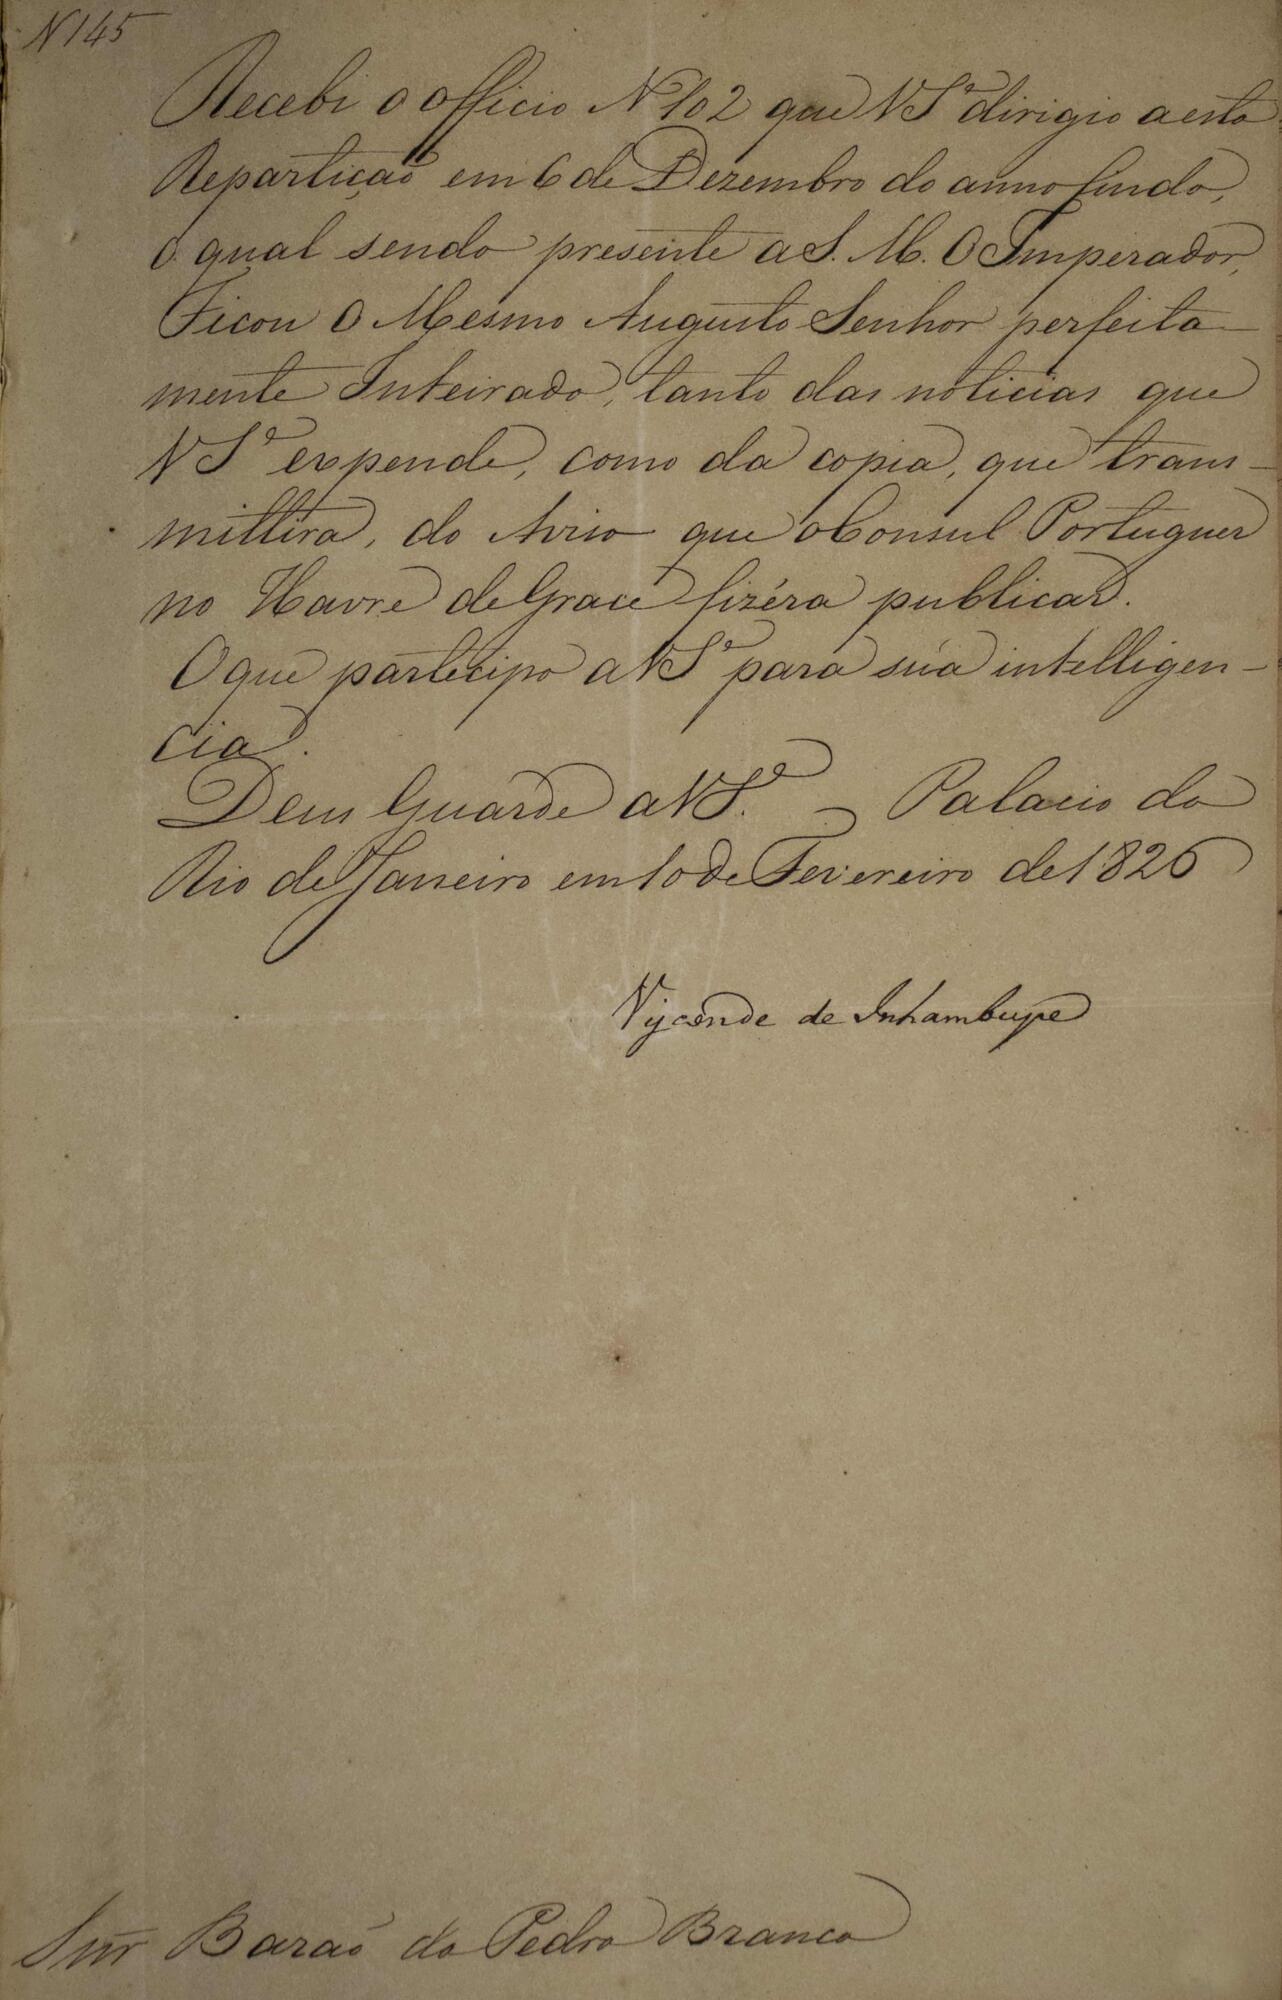 N 145
Recebi o officio N 102 que VSª dirigio a esta
Repartição em 6 de Dezembro do anno findo,
o qual sendo presente a S. M. O Imperador,
Ficou O Mesmo Augusto Senhor perfeita-
mente Inteirado, tanto das noticias que
VSª expende, como da copia, que trans-
mittira, do Aviso que o Consul Portuguez
no Havre de Grace fizéra publicar.
O que participo a VSª para súa intelligen-
cia.
Deus Guarde a VSª. Palacio do
Rio de Janeiro em 10 de Fevereiro de 1826
Visconde de Inhambupe
Snr Barão da Pedra Branca